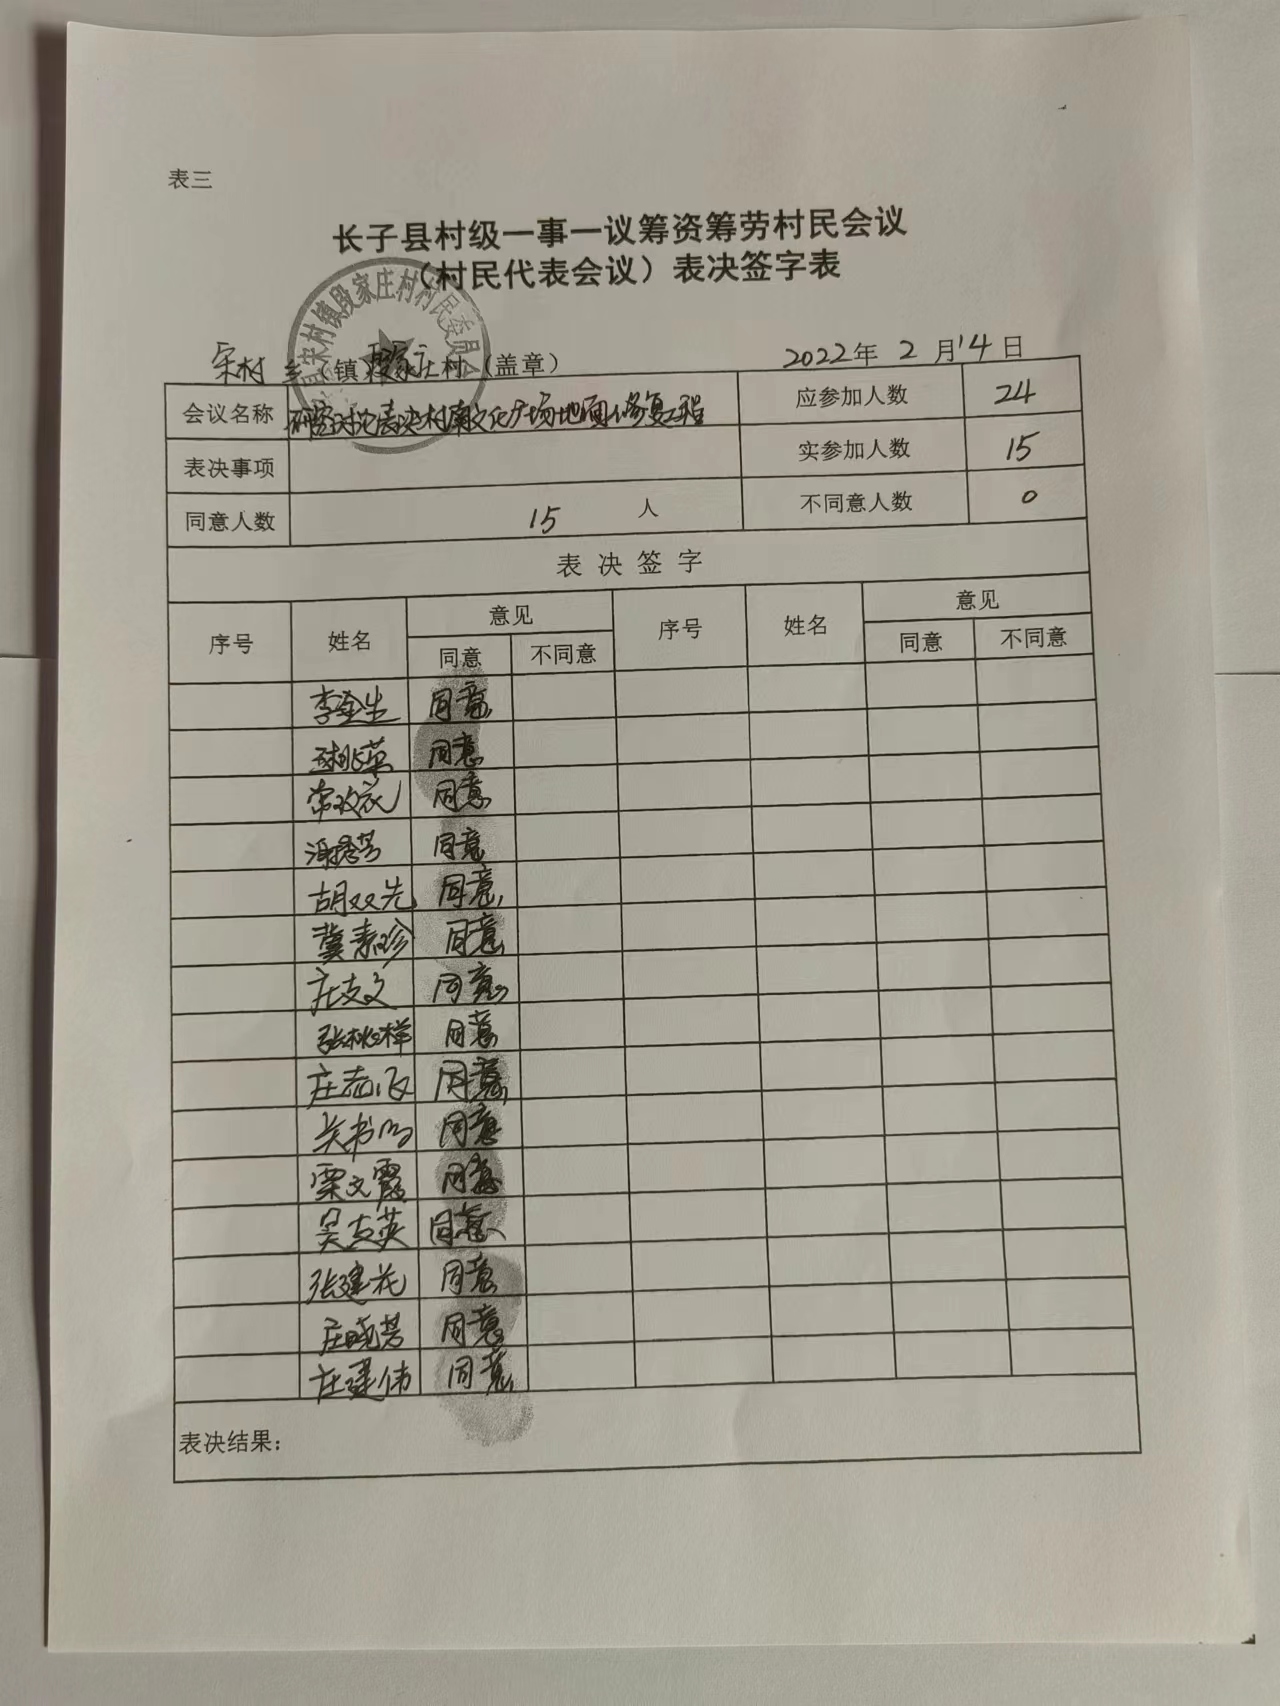 表三
长子县村级一事一议筹资筹劳村民会议
（村民代表会议）表决签字表
县宋村镇段家庄村村民委员会
宋村 乡（镇）段家庄村（盖章） 2022年 2 月 14 日
会议名称 研究讨论表决村南文化广场地面修复工程 应参加人数 24
表决事项 实参加人数 15
同意人数 15 人 不同意人数 0
表 决 签 字
序号 姓名 意见 序号 姓名 意见
同意 不同意 同意 不同意
李金生 同意
同意
常改成 同意
同意
胡双先 同意
冀素珍 同意
庄支文 同意
张桃样 同意
庄志 同意
关书 同意
栗文霞 同意
吴支英 同意
张建花 同意
庄晓芳 同意
庄建伟 同意
表决结果：